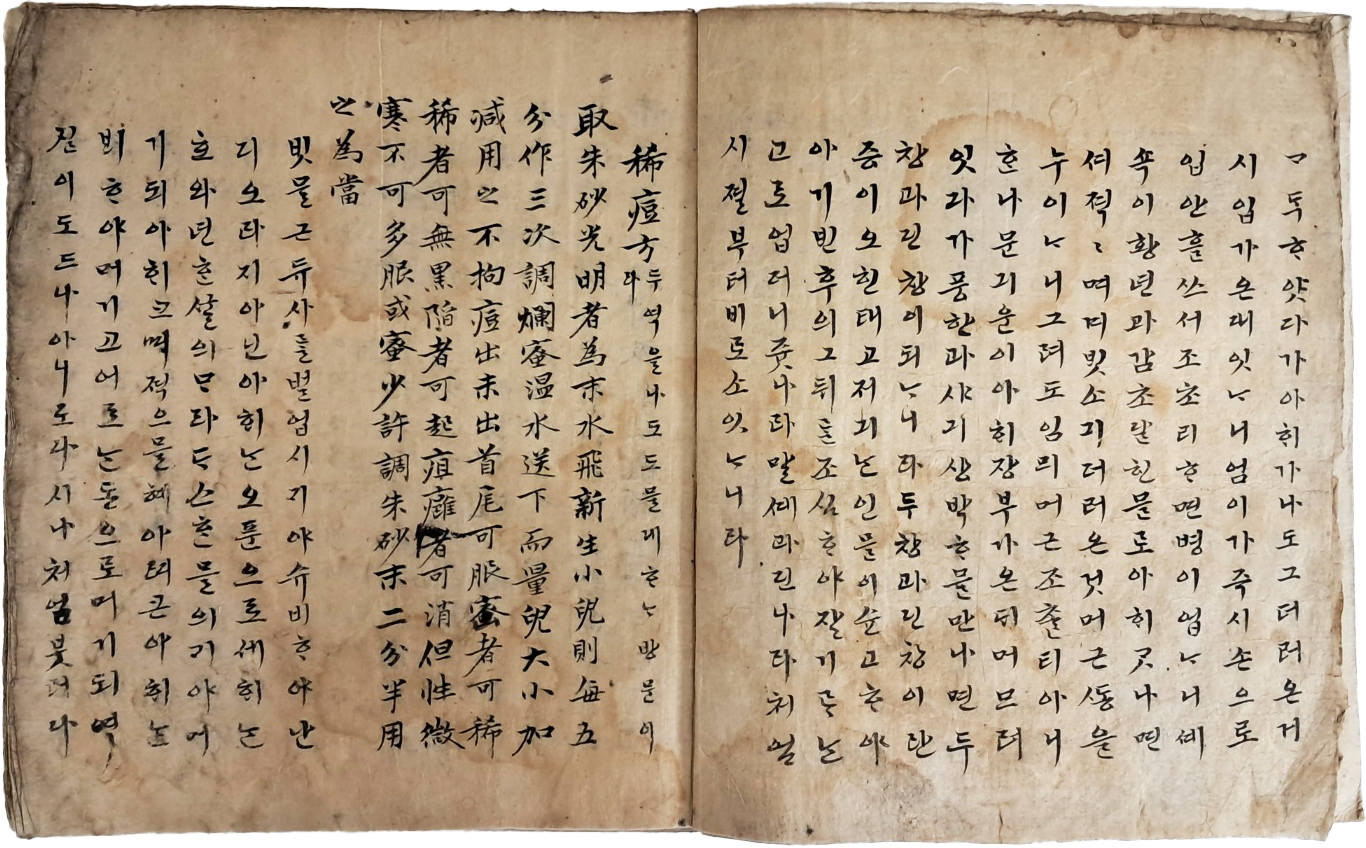 ㅁ두ᄒᆞ얏다가아ᄒᆡ가나도그더러온거
시입가온대잇ᄂᆞ니엄이가즉시손으로
입안흘쓰서조초리ᄒᆞ면병이업ᄂᆞ니셰
쇽이황년과감초달힌믈로아ᄒᆡ곳나면
셔젹〻며며빗소긔더러온것머근ᄯᅩᆼ을
누이ᄂᆞ니그려도임의머근조츌티아니
ᄒᆞᆫ나문긔운이아ᄒᆡ장부가온ᄃᆡ머므러
잇다가풍한과샤긔샹박ᄒᆞ믈만나면두
창과딘창이되ᄂᆞ니라두창과딘창이단
증이오ᄒᆞᆫ태고저긔ᄂᆞᆫ인믈이슌고ᄒᆞ야
아기빈후의그뒤ᄅᆞᆯ조심ᄒᆞ야잘기ᄅᆞᄂᆞᆫ
고로업더니쥿나라말셰과딘나라처엄
시졀부터비로소잇ᄂᆞ니라
稀痘方두역을나도믈게ᄒᆞᄂᆞᆫ방문이라
取朱砂光明者為末水飛新生小兒則每五
分作三次調爛蜜温水送下而量兒大小加
减用之不拘痘出未出首尾可服蜜者可稀
稀者可無黑陷者可起疽癰者可消但性微
寒不可多服或蜜少許調朱砂末二分半用
之為當
빗믈근듀사ᄅᆞᆯ벌업시기야슈비ᄒᆞ야난
디오라지아닌아ᄒᆡᄂᆞᆫ오푼으로세ᄒᆡᄂᆞᆫ
호와년ᄒᆞᆫᄭᅮᆯ의ᄆᆞ라ᄃᆞᄉᆞᄒᆞᆫ믈의기야머
기되아ᄒᆡ크며젹으믈혜아려근아ᄒᆡᄂᆞᆫ
ᄇᆡᄒᆞ야머기고어로ᄂᆞᆫ돈으로머기되역
질이도드나아니로다시나처엄붓터다